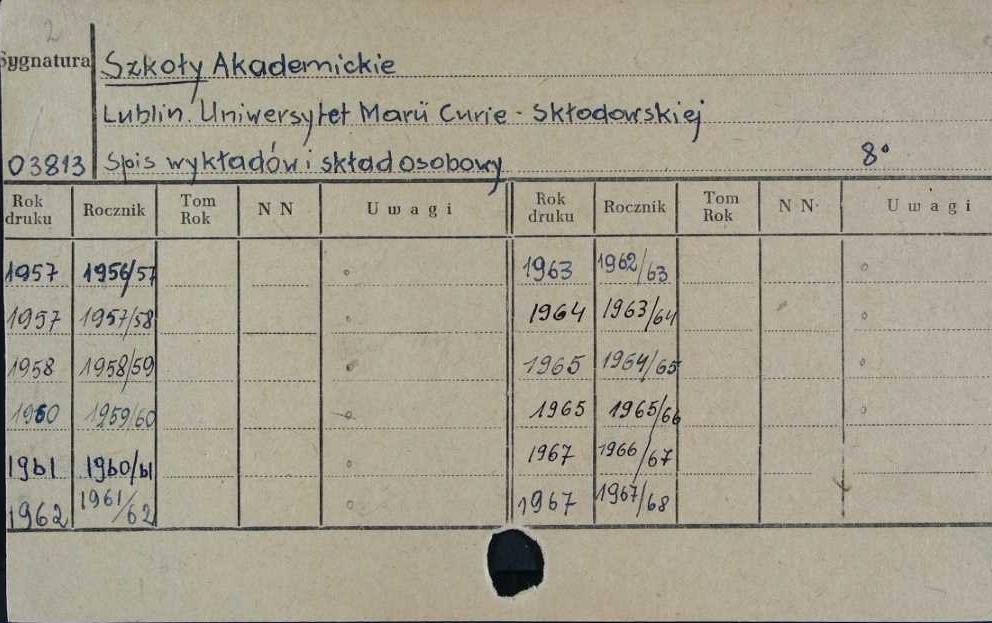 2
Sygnatura Szkoły Akademickie
Lublin. Uniwersytet Marii Curie - Skłodowskiej
03813 Spis wykładów i skład osobowy 8°
Rok druku Rocznik Tom Rok NN Uwagi Rok druku Rocznik Tom Rok NN Uwagi
1957 1956/57 1963 1962/63
1957 1957/58 1964 1963/64
1958 1958/59 1965 1964/65
1960 1959/60 1965 1965/66
1961 1960/61 1967 1966/67
1962 1961/62 1967 1967/68